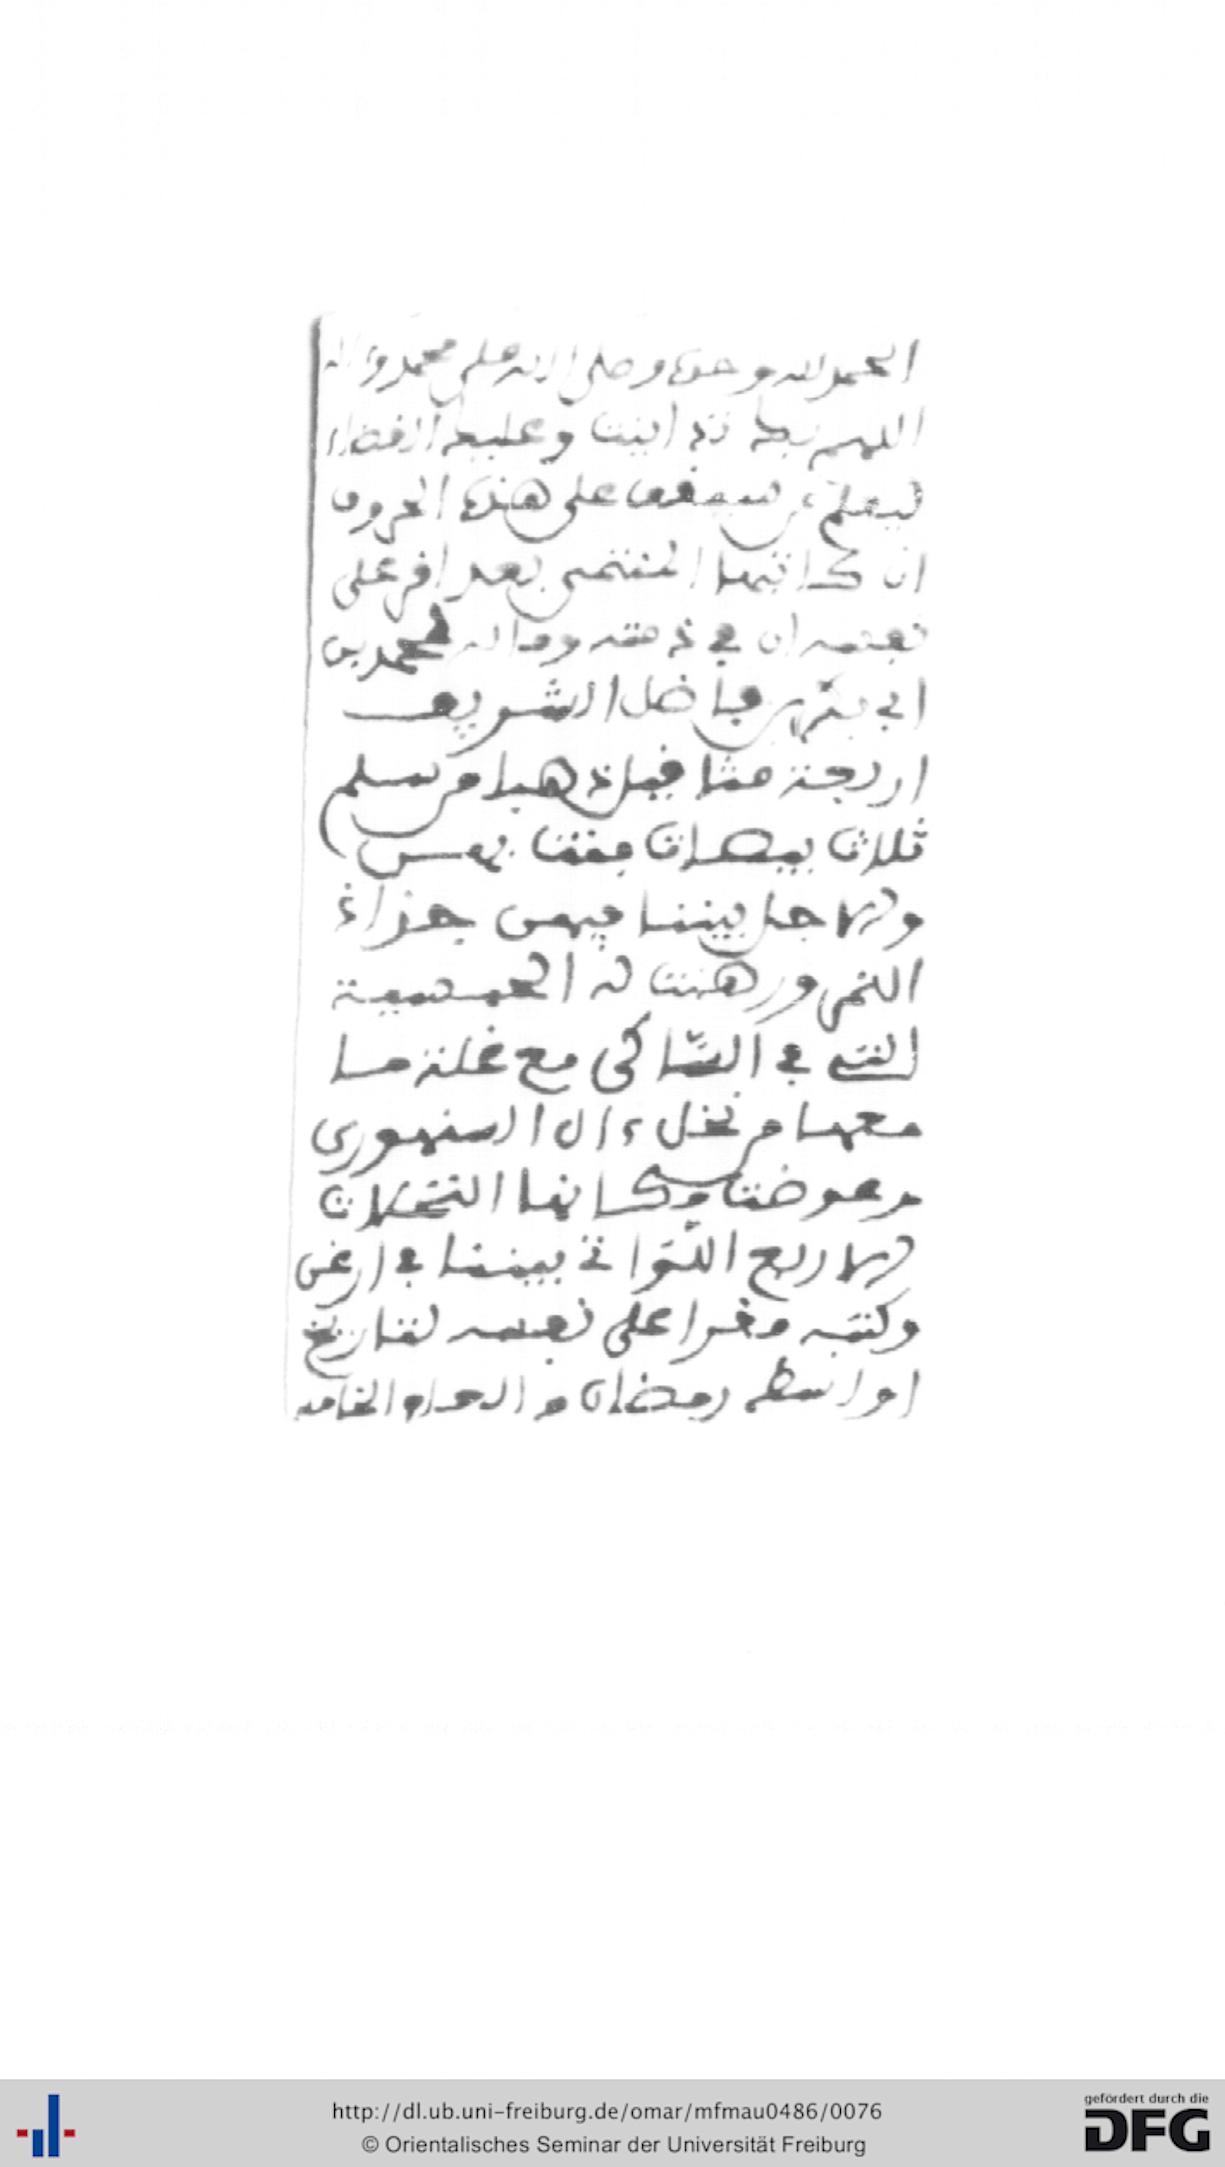 الحمد لله وحده وصلى الله على محمد وآله
اللهم بك تدا ينت وعليك القضاء
ليعلم من سيقف على هذه الحروف
ان كاتبها المنتمى بعد اقر على
نفسه ان في ذمته وماله لمحمد بن
ابي بكر بن فاضل الشريف
اربعة مثاقيل ذهبا من سلم
ثلاث بيصات
ولا اجل بيننا فيهن جزاء
الثمن ورهنت له الخمسية
التي في الشاكى مع غلة ما
معها من نخل ءال السنهورى
وكانها النخلات
ربع بيننا في ارض
وكتبه مقرا على نفسه لتاريخ
اواسط رمضان من العام الخامس
http://dl.ub.uni-freiburg.de/omar/mfmau0486/0076
© Orientalisches Seminar der Universität Freiburg
gefördert durch die
DFG